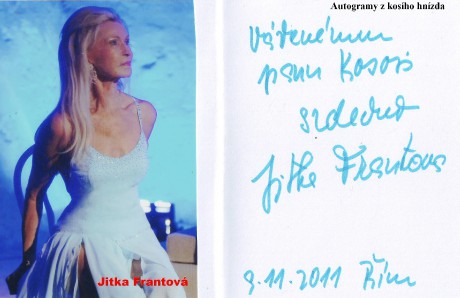 Autogramy z kosího hnízda
Váženému
panu Kosovi
srdečně
Jitka Frantová
9.11.2011 Řím
Jitka Frantová